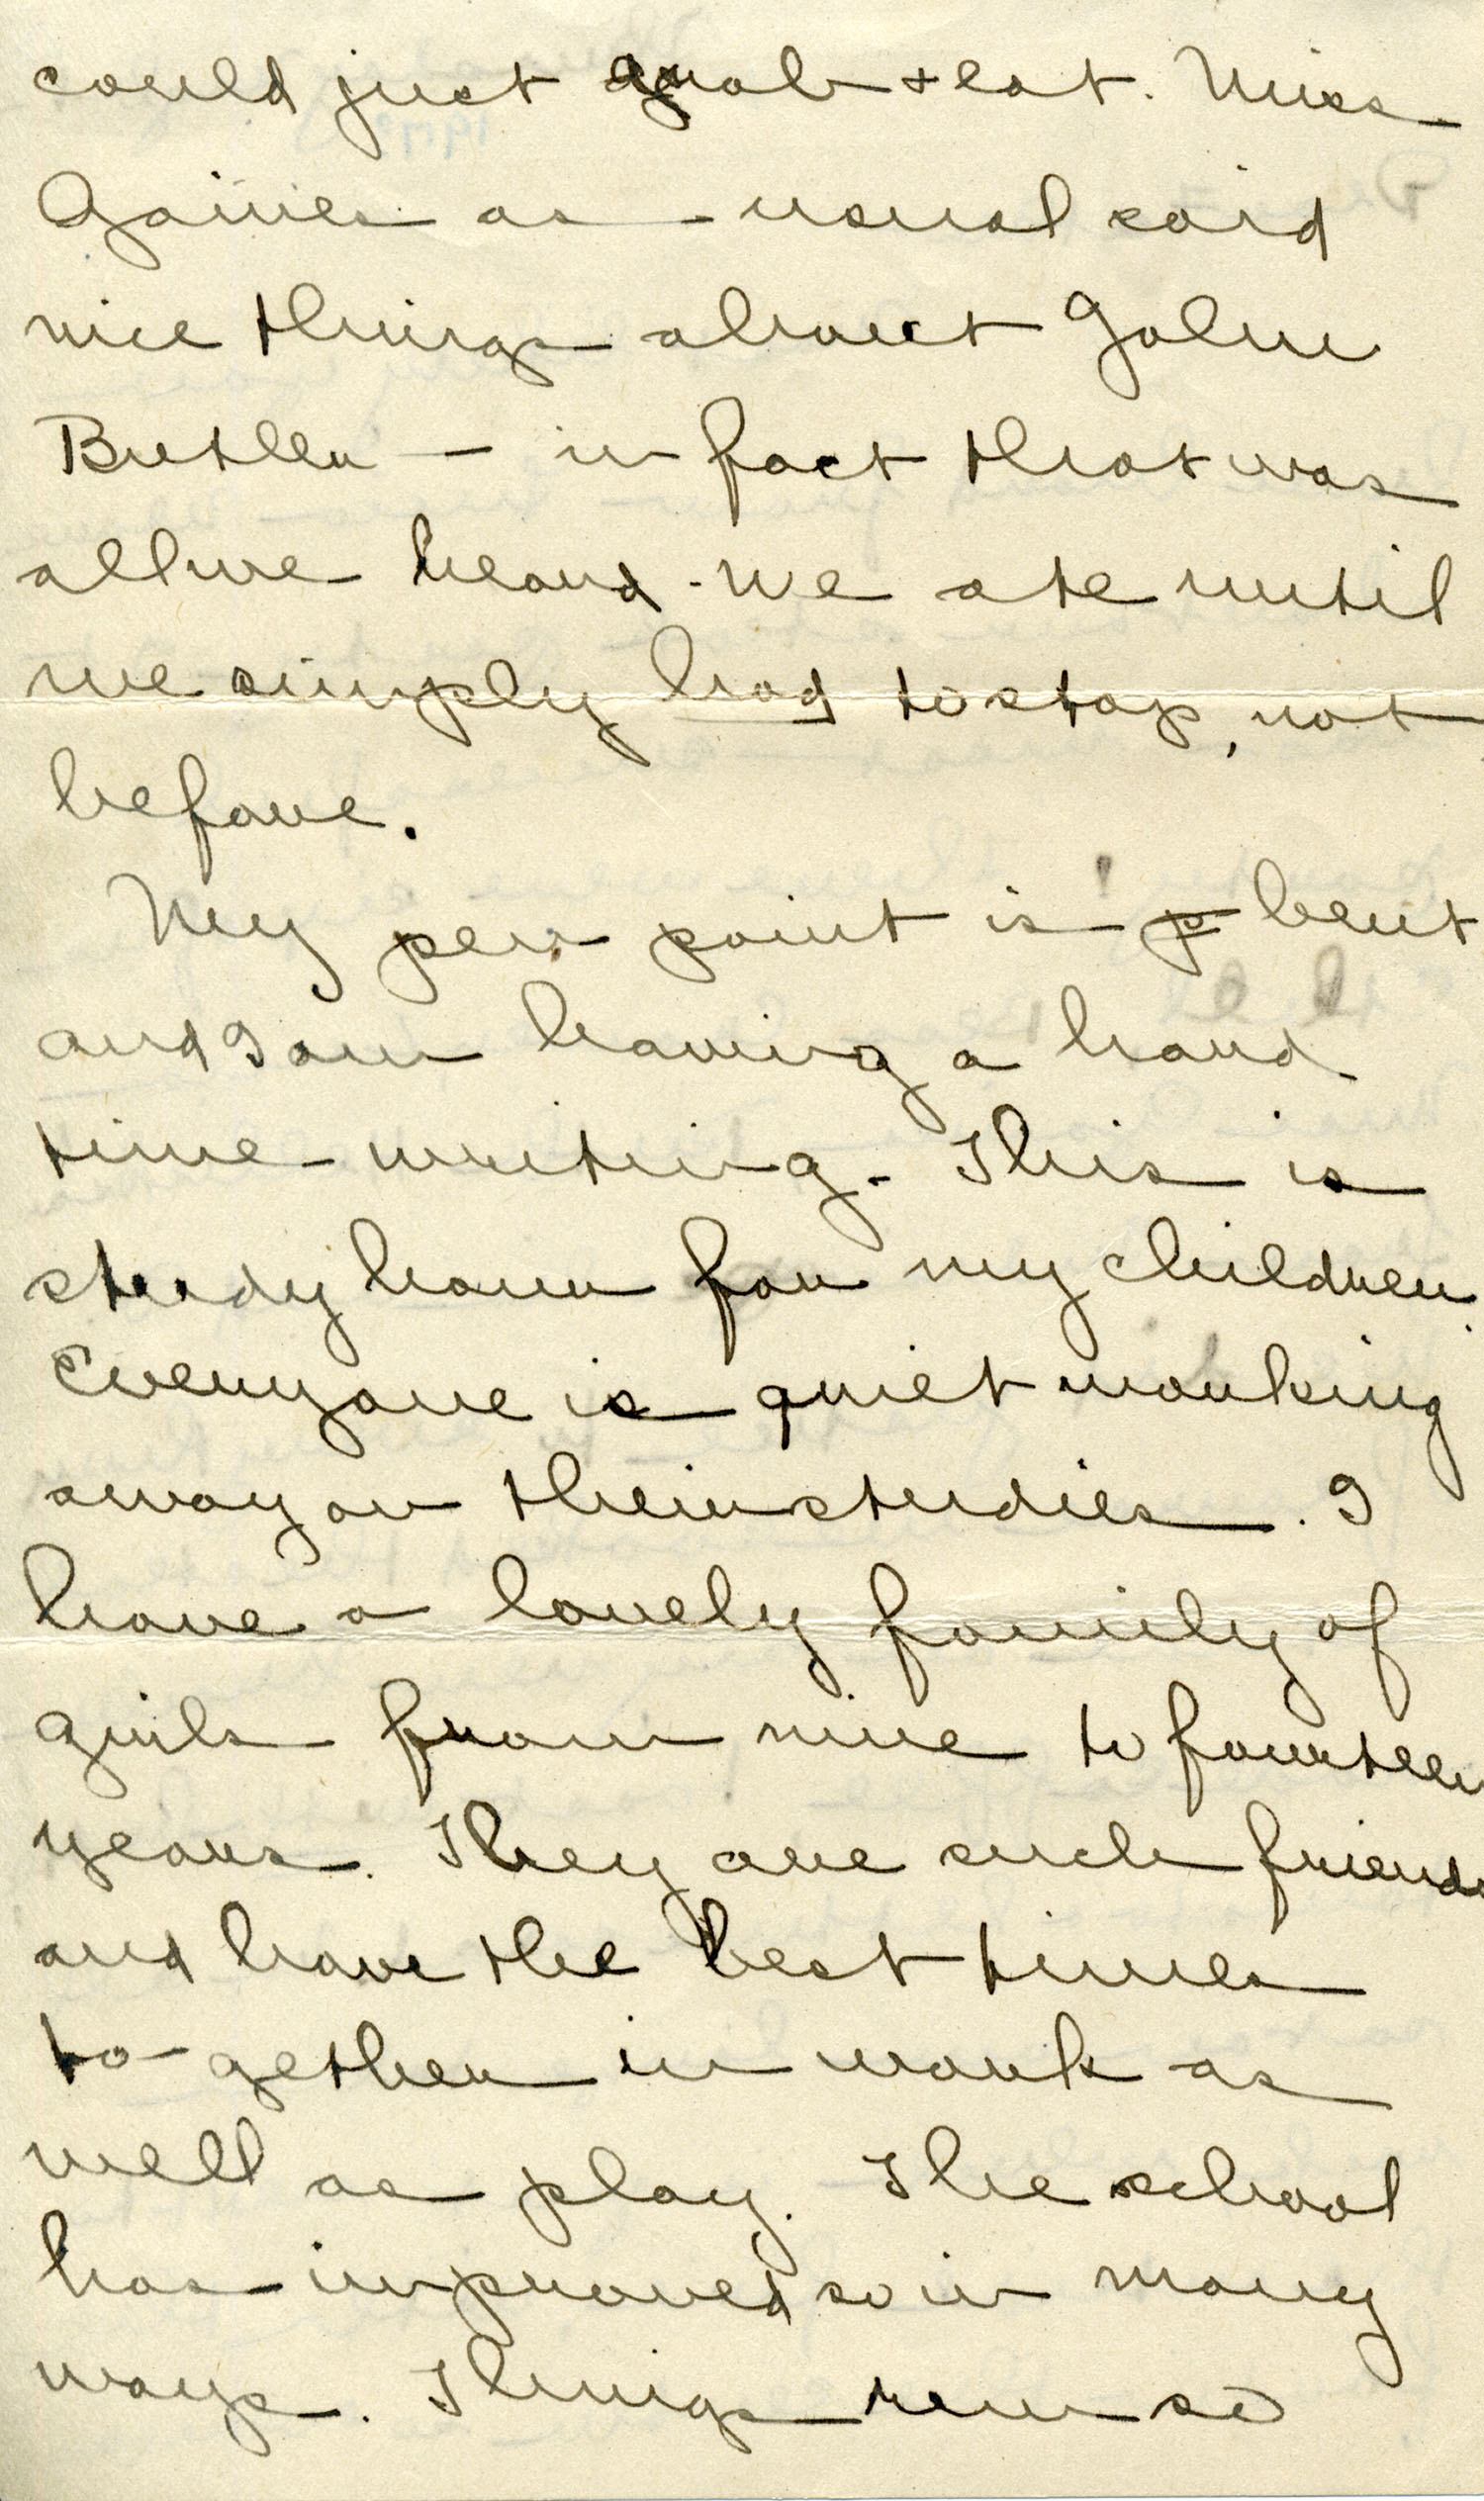 could just grab + eat. Miss
Gaines as usual said
nice things about John
Butler — in fact that was
all we heard. We ate until
we simply had to stop, not
before.
My pen point is p bent
and I am having a hard
time writing. This is
study hour for my children.
Everyone is quiet working
away on their studies. I
have a lovely family of
girls from nine to fourteen
years. They are such friends
and have the best times
to-gether in work as
well as play. The school
has improved so in many
ways. Things run so